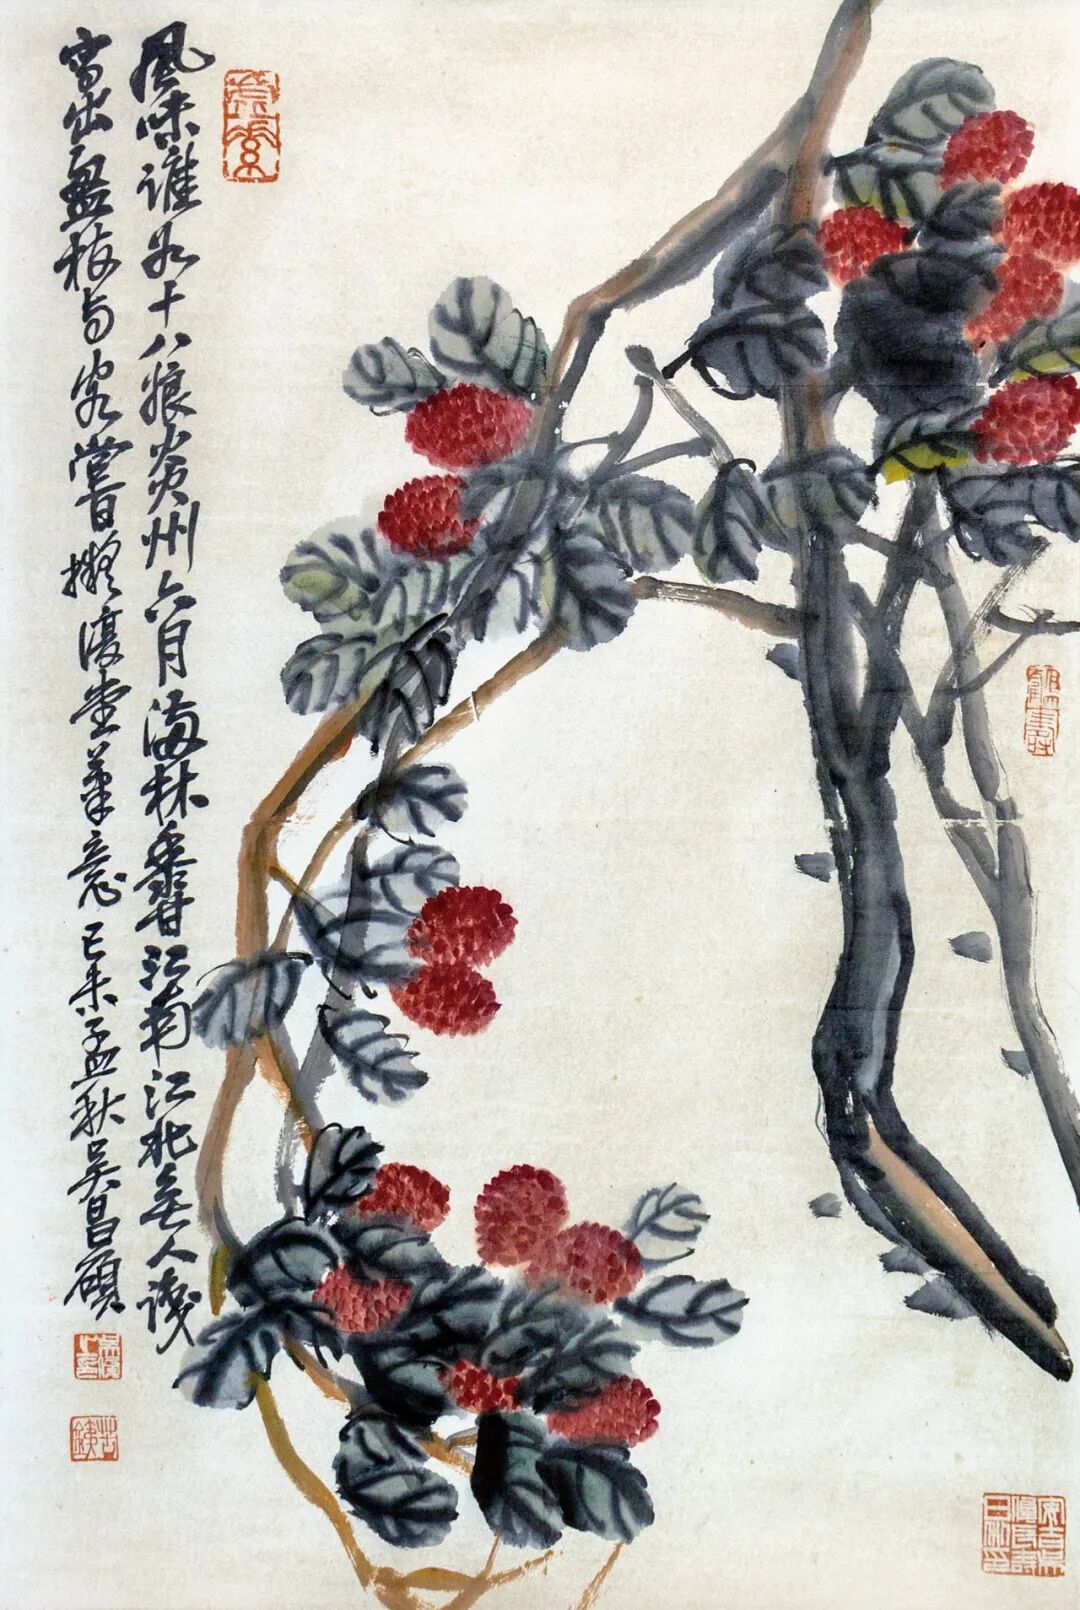 風味誰如十八娘炎州六月海林香江南江北無人識
寫出盈枝与客嘗擬復堂筆意己未孟秋吳昌碩
苦鐵